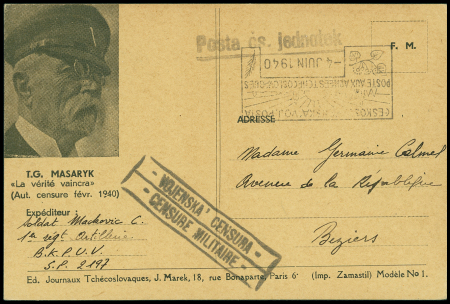 Posta čs. jednotek
F. M.
-4 JUIN 1940
POSTE AUX ARMEES TCHECOSLOVAQUES
ČESKOSL. POLNÍ POSTA
ADRESSE
Madame Germaine Calmel
Avenue de la République
Beziers
T.G. MASARYK
«La vérité vaincra»
(Aut. censure févr. 1940)
Expéditeur:
Soldat Mackovic C.
1er rgt Artillerie
B.K.P.U.V.
S.P. 2197
- VOJENSKA' CENSURA -
- CENSURE MILITAIRE -
Ed. Journaux Tchécoslovaques, J. Marek, 18, rue Bonaparte, Paris 6e (Imp. Zamastil) Modèle No 1.